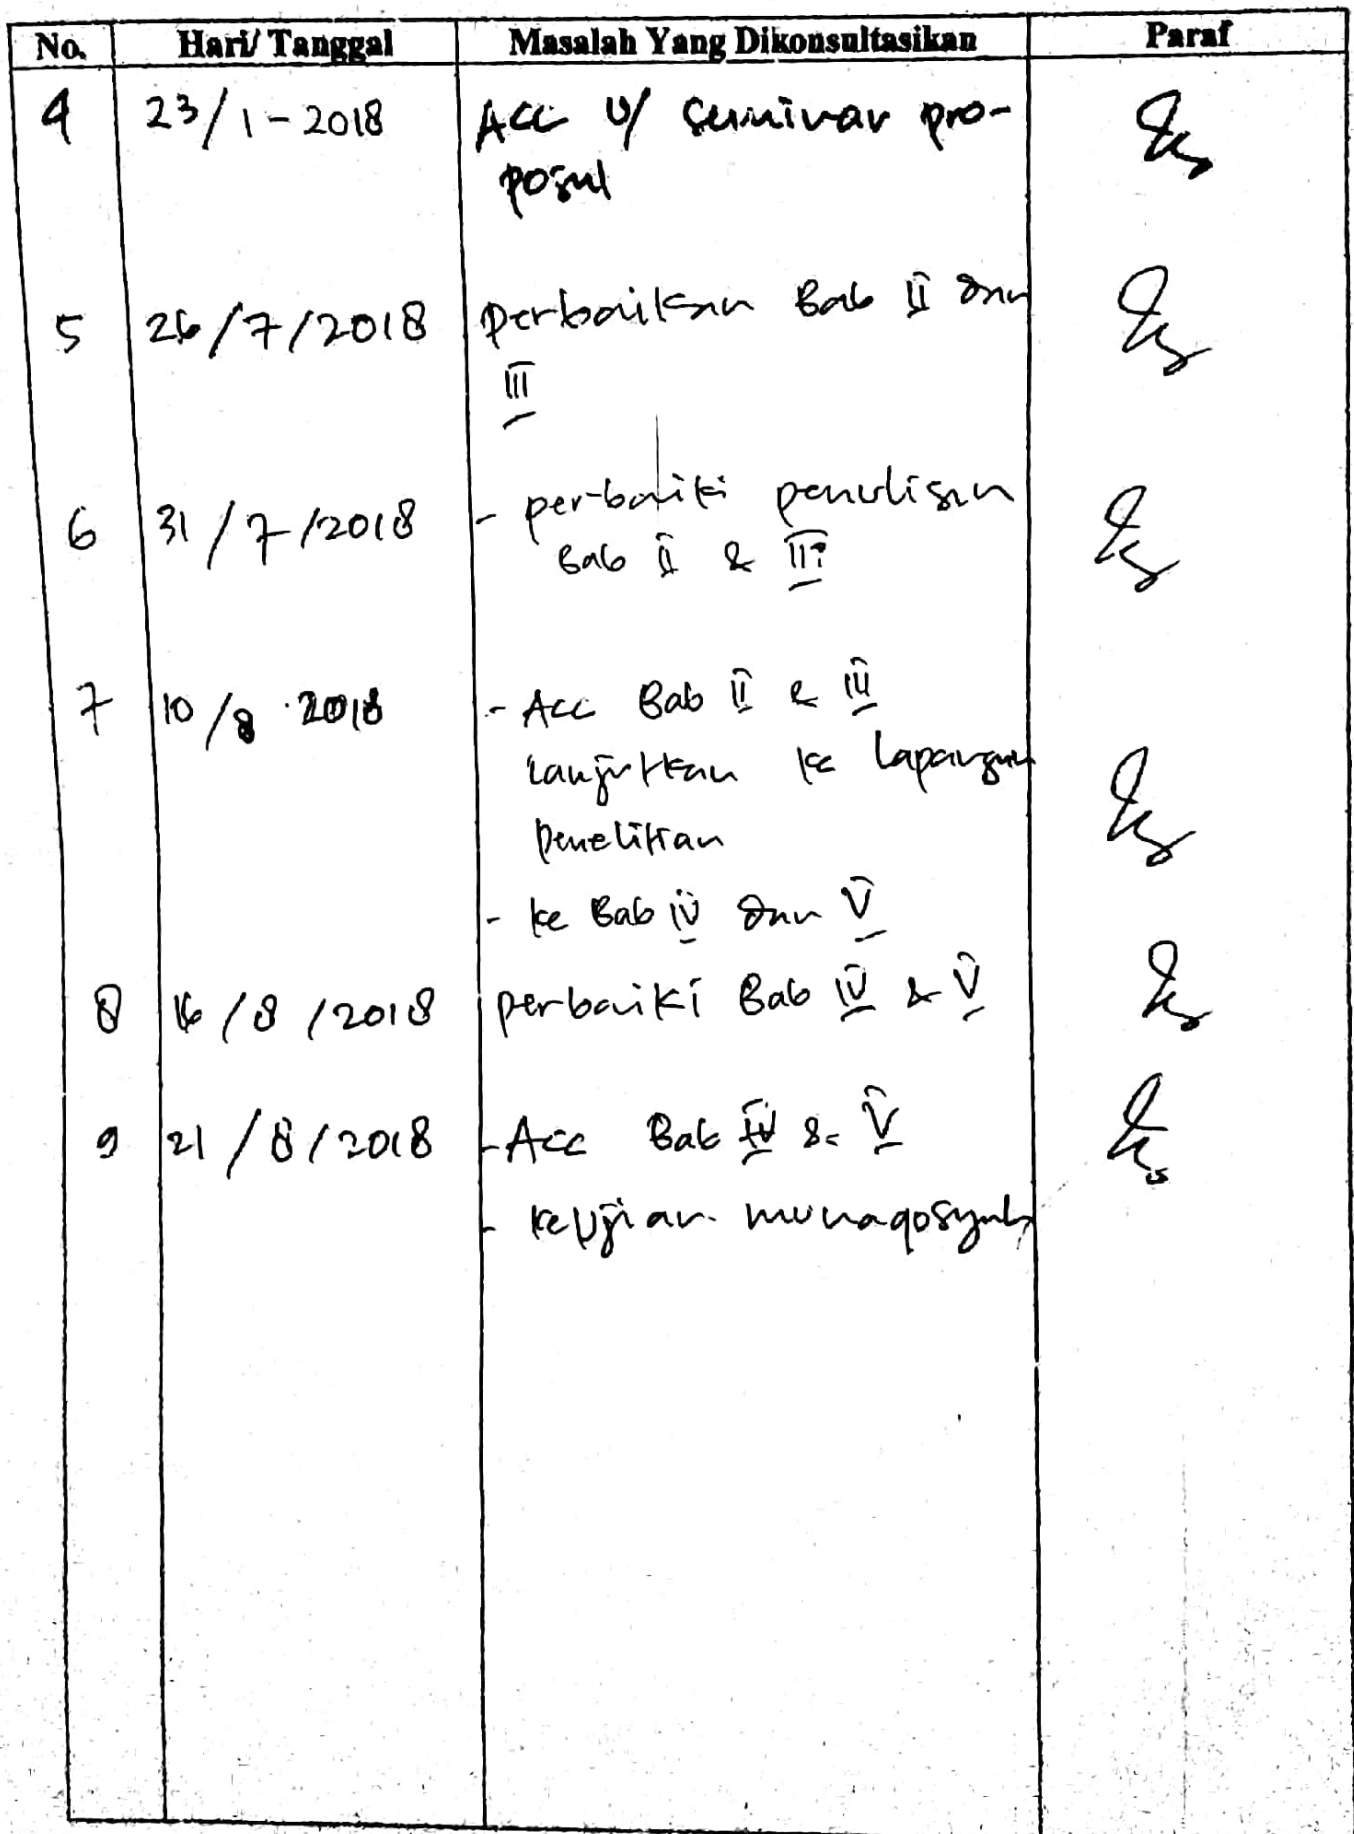 No. Hari/ Tanggal Masalah Yang Dikonsultasikan Paraf
4 23/1-2018 Acc u/ seminar pro-
posal
5 26/7/2018 perbaikan Bab II dan
III
6 31/7/2018 - perbaiki penulisan
Bab II & III
7 10/8 2018 - Acc Bab II & III
lanjutkan ke lapangan
penelitian
- ke Bab IV dan V
8 16/8/2018 perbaiki Bab IV & V
9 21/8/2018 - Acc Bab IV & V
- ke ujian munaqosyah